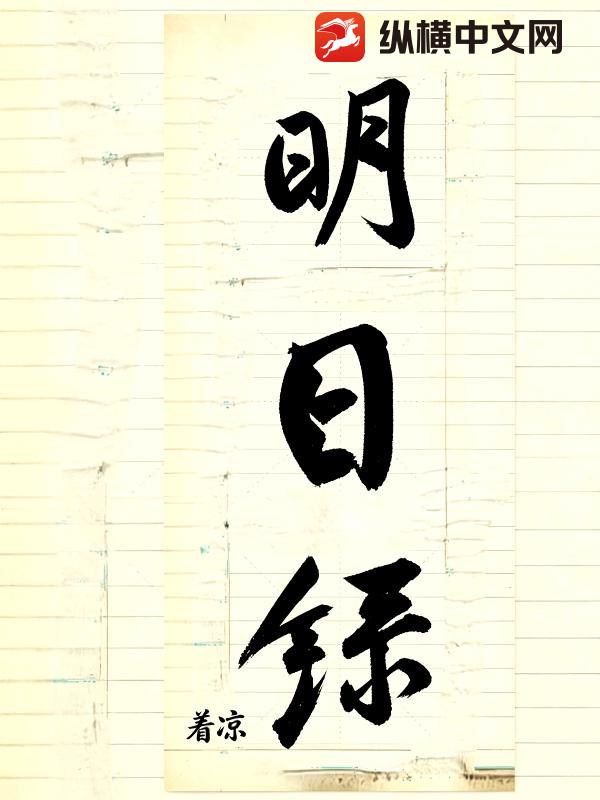 纵横中文网
明日録
着凉